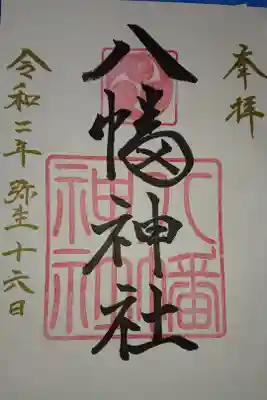 奉拝
八幡神社
八幡神社
令和二年 弥生十六日